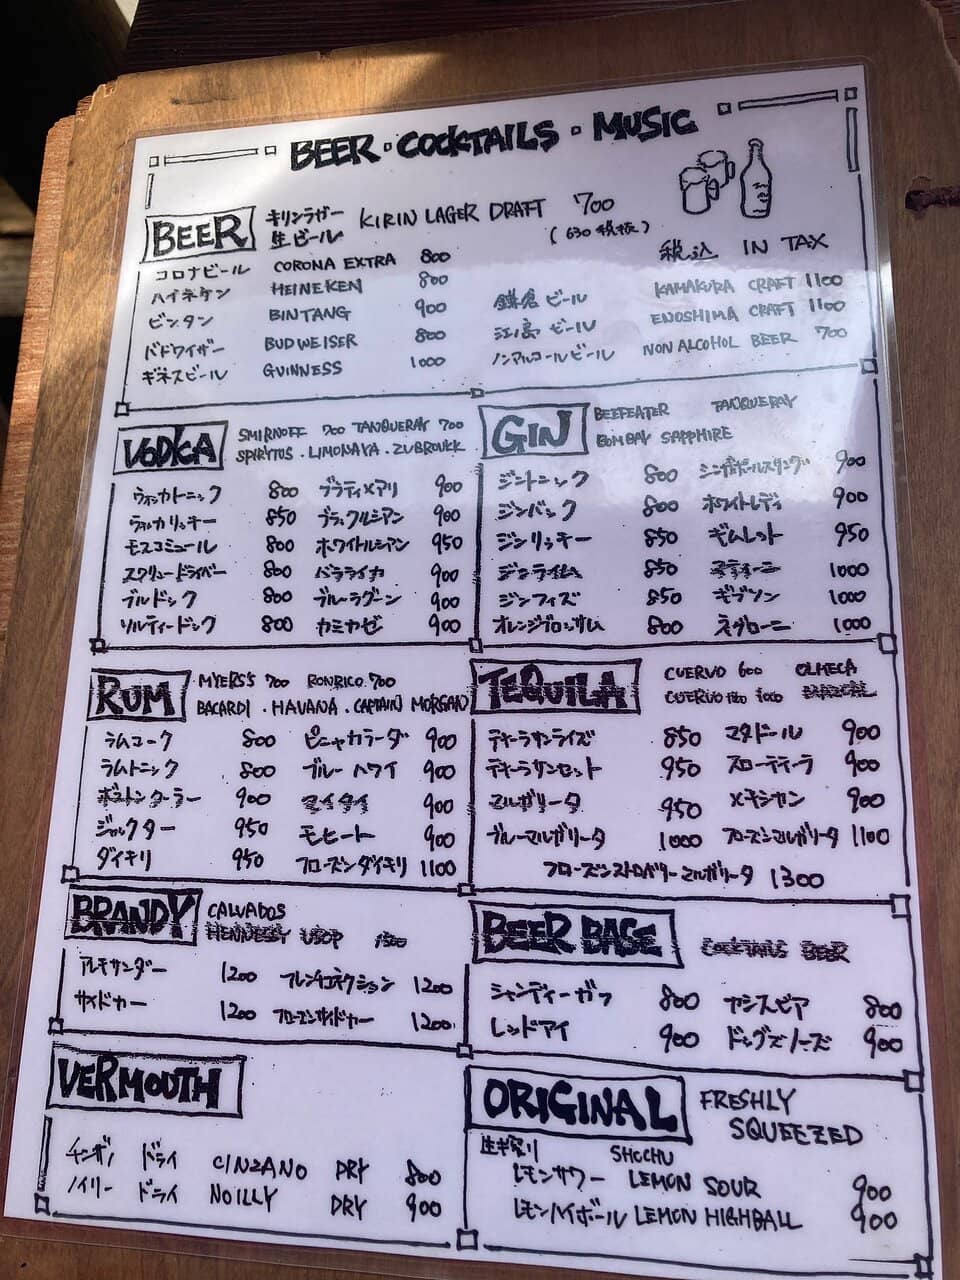 BEER・COCKTAILS・MUSIC
BEER
キリンラガー 生ビール KIRIN LAGER DRAFT 700
(630税抜)
税込 IN TAX
コロナビール CORONA EXTRA 800
ハイネケン HEINEKEN 800
ビンタン BINTANG 900
バドワイザー BUDWEISER 800
ギネスビール GUINNESS 1000
鎌倉ビール KAMAKURA CRAFT 1100
江ノ島ビール ENOSHIMA CRAFT 1100
ノンアルコールビール NON ALCOHOL BEER 700
VODKA
SMIRNOFF 700 TANQUERAY 700
SPIRYTUS・LIMONAYA・ZUBROWKK
ウォッカトニック 800 ブラディメアリ 900
ウォッカリッキー 850 ブラックルシアン 900
モスコミュール 800 ホワイトルシアン 950
スクリュードライバー 800 バラライカ 900
ブルドック 800 ブルーラグーン 900
ソルティードッグ 800 カミカゼ 900
GIN
BEEFEATER TANQUERAY
BOMBAY SAPPHIRE
ジントニック 800 シンガポールスリング 900
ジンバック 800 ホワイトレディ 900
ジンリッキー 850 ギムレット 950
ジンライム 850 マティーニ 1000
ジンフィズ 850 ギブソン 1000
オレンジブロッサム 800 ネグローニ 1000
RUM
MYERS'S 700 RONRICO 700
BACARDI・HAVANA・CAPTAIN MORGAN
ラムコーク 800 ピニャカラーダ 900
ラムトニック 800 ブルーハワイ 900
ボストンクーラー 900 マイタイ 900
ジャックター 950 モヒート 900
ダイキリ 950 フローズンダイキリ 1100
TEQUILA
CUERVO 600 OLMECA
CUERVO 1800 1000
テキーラサンライズ 850 マタドール 900
テキーラサンセット 950 スローテキーラ 900
マルガリータ 950 メキシカン 900
ブルーマルガリータ 1000 フローズンマルガリータ 1100
フローズンストロベリーマルガリータ 1300
BRANDY
CALVADOS
HENNESSY VSOP 1500
アレキサンダー 1200 フレンチコネクション 1200
サイドカー 1200 フローズンサイドカー 1200
BEER BASE
COCKTAILS BEER
シャンディーガフ 800 カシスビア 800
レッドアイ 900 ドッグズノーズ 900
VERMOUTH
チンザノ ドライ CINZANO DRY 800
ノイリー ドライ NOILLY DRY 900
ORIGINAL
FRESHLY
SQUEEZED
生半搾り SHOCHU
レモンサワー LEMON SOUR 900
レモンハイボール LEMON HIGHBALL 900